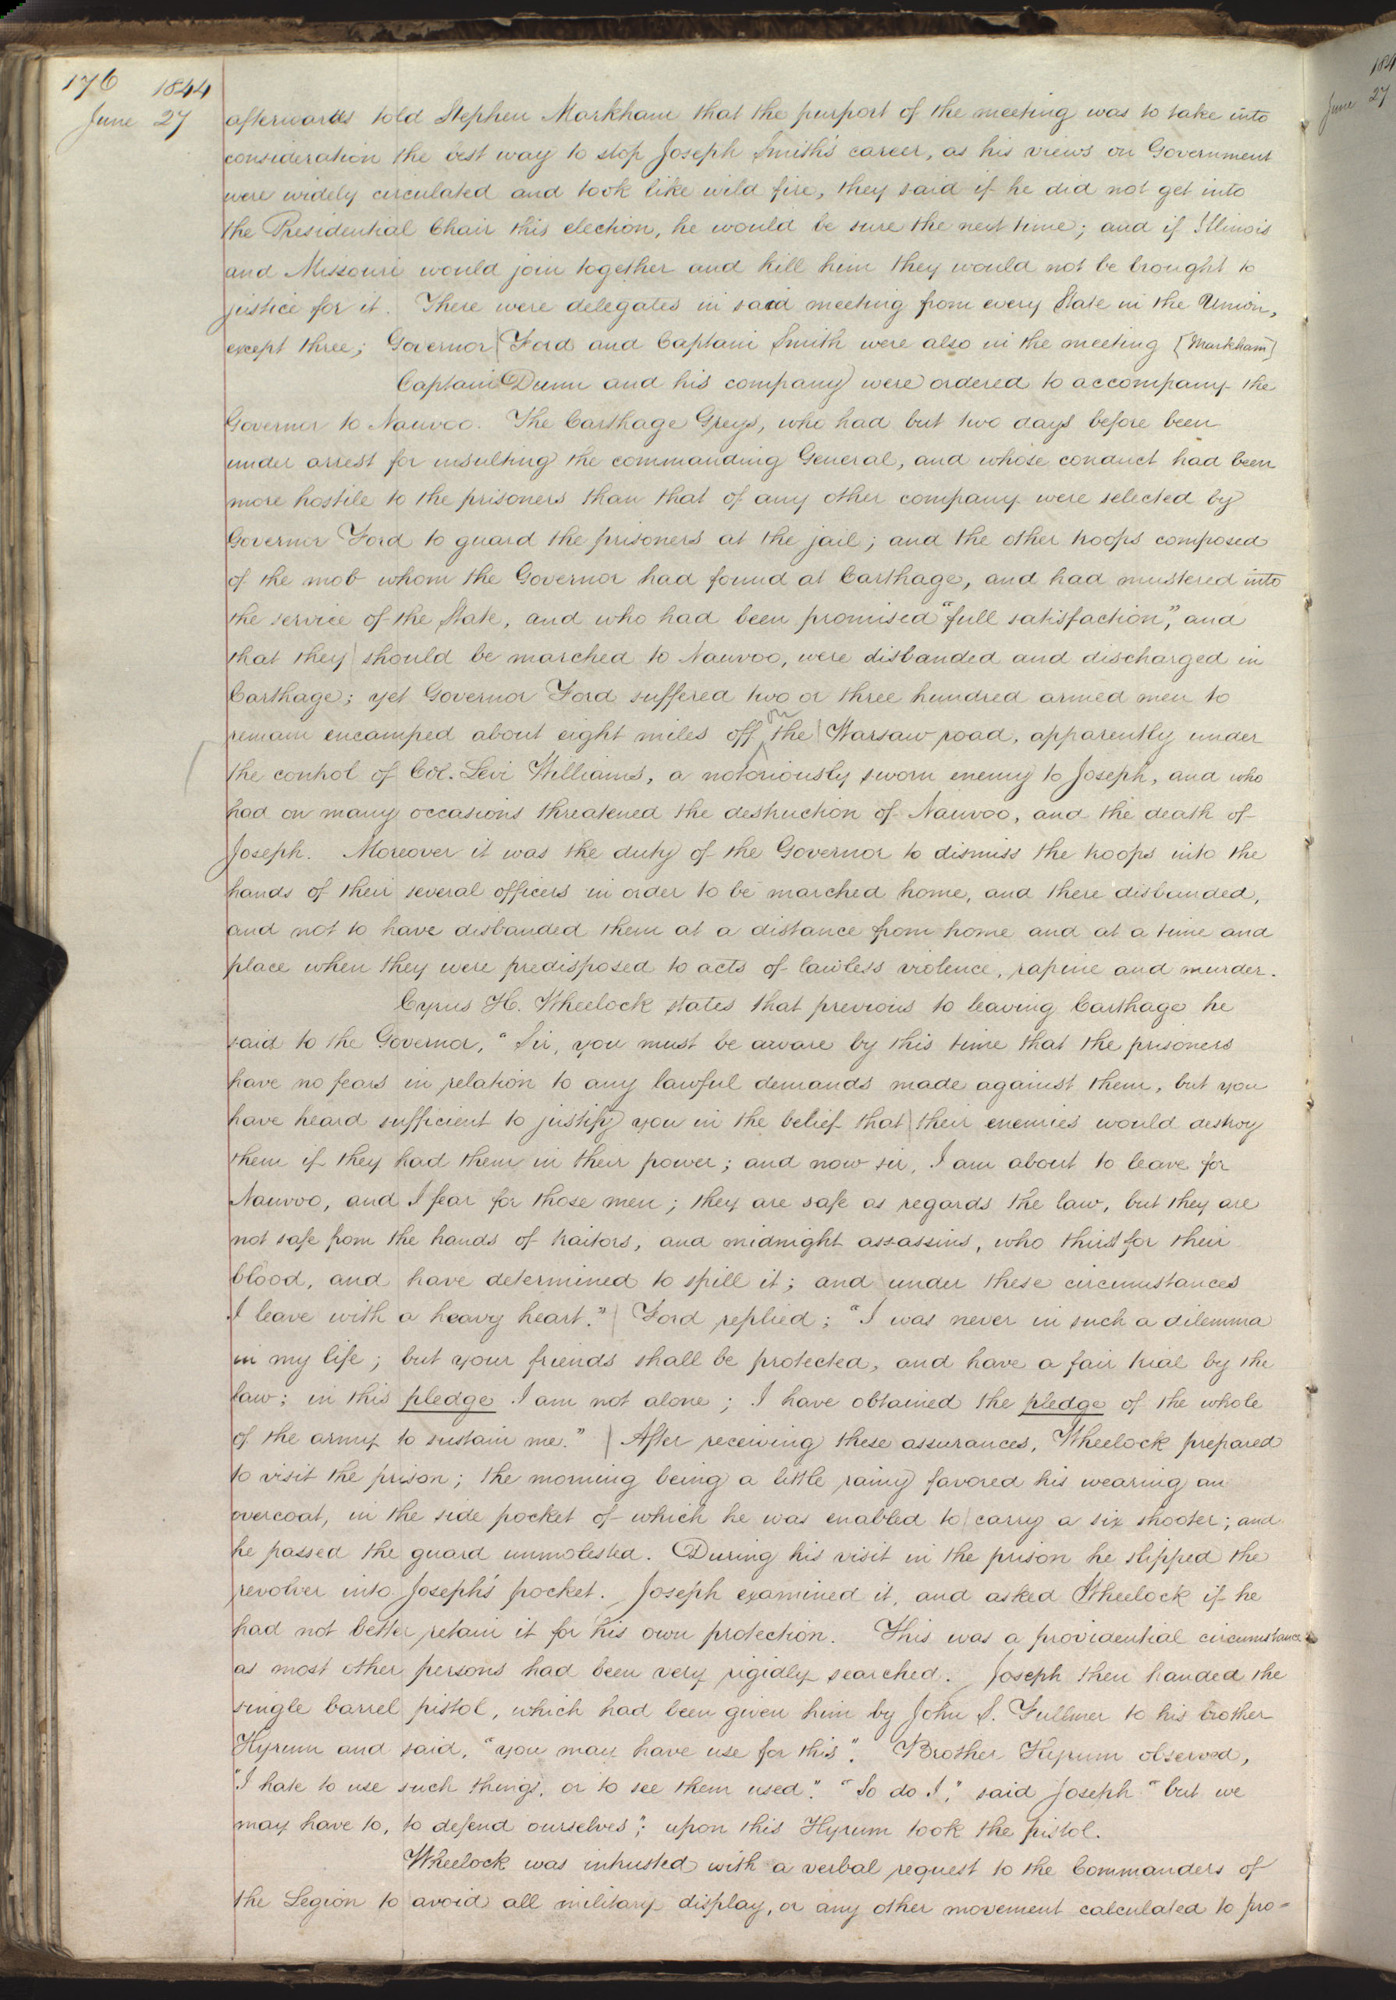 176 1844
June 27 afterwards told Stephen Markham that the purport of the meeting was to take into
consideration the best way to stop Joseph Smith's career, as his views on Government
were widely circulated and took like wild fire, they said if he did not get into
the Presidential Chair this election, he would be sure the next time; and if Illinois
and Missouri would join together and kill him they would not be brought to
justice for it. There were delegates in said meeting from every State in the Union,
except three; Governor Ford and Captain Smith were also in the meeting [Markham]
Captain Dunn and his company were ordered to accompany the
Governor to Nauvoo. The Carthage Greys, who had but two days before been
under arrest for insulting the commanding General, and whose conduct had been
more hostile to the prisoners than that of any other company were selected by
Governor Ford to guard the prisoners at the jail; and the other troops composed
of the mob whom the Governor had found at Carthage, and had mustered into
the service of the State, and who had been promised "full satisfaction", and
that they should be marched to Nauvoo, were disbanded and discharged in
Carthage; yet Governor Ford suffered two or three hundred armed men to
remain encamped about eight miles off on the Warsaw road, apparently under
the control of Col. Levi Williams, a notoriously sworn enemy to Joseph, and who
had on many occasions threatened the destruction of Nauvoo, and the death of
Joseph. Moreover it was the duty of the Governor to dismiss the troops into the
hands of their several officers in order to be marched home, and there disbanded,
and not to have disbanded them at a distance from home and at a time and
place when they were predisposed to acts of lawless violence, rapine and murder.
Cyrus H. Wheelock states that previous to leaving Carthage he
said to the Governor, "Sir, you must be aware by this time that the prisoners
have no fears in relation to any lawful demands made against them, but you
have heard sufficient to justify you in the belief that their enemies would destroy
them if they had them in their power; and now sir, I am about to leave for
Nauvoo, and I fear for those men; they are safe as regards the law, but they are
not safe from the hands of traitors, and midnight assassins, who thirst for their
blood, and have determined to spill it; and under these circumstances
I leave with a heavy heart." Ford replied; "I was never in such a dilemma
in my life; but your friends shall be protected, and have a fair trial by the
law; in this pledge I am not alone; I have obtained the pledge of the whole
of the army to sustain me." After receiving these assurances, Wheelock prepared
to visit the prison; the morning being a little rainy favored his wearing an
overcoat, in the side pocket of which he was enabled to carry a six shooter; and
he passed the guard unmolested. During his visit in the prison he slipped the
revolver into Joseph's pocket. Joseph examined it, and asked Wheelock if he
had not better retain it for his own protection. This was a providential circumstance
as most other persons had been very rigidly searched. Joseph then handed the
single barrel pistol, which had been given him by John S. Fullmer to his brother
Hyrum and said, "you may have use for this". Brother Hyrum observed,
"I hate to use such things, or to see them used". "So do I," said Joseph "but we
may have to, to defend ourselves"; upon this Hyrum took the pistol.
Wheelock was intrusted with a verbal request to the Commanders of
the Legion to avoid all military display, or any other movement calculated to pro=
184
June 27